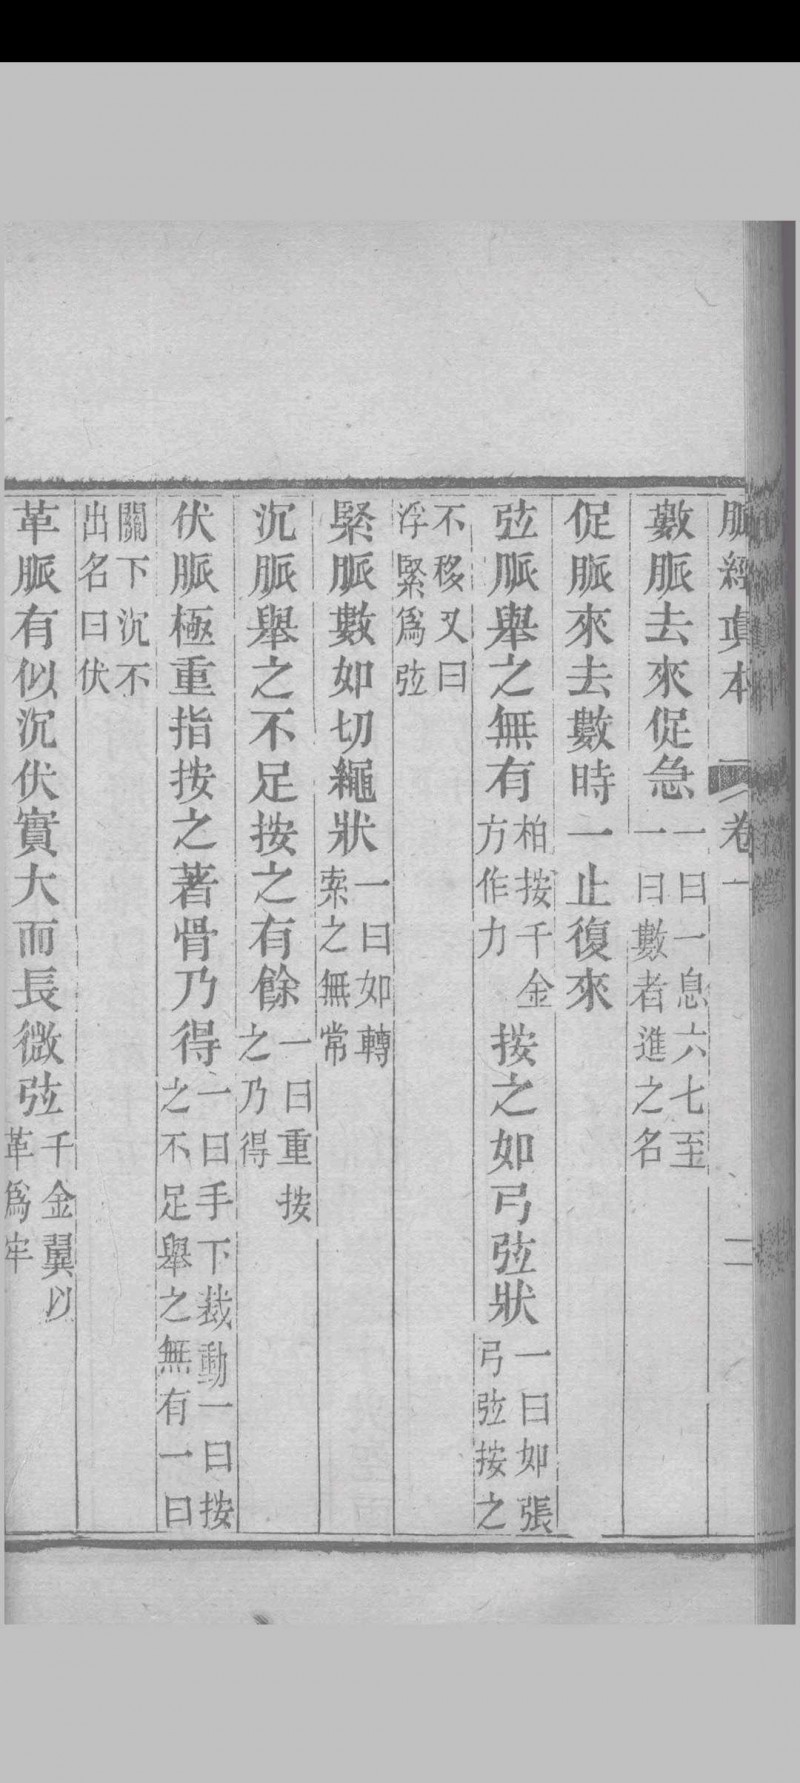 脈經真本 卷一 二
數脈去來促急一曰一息六七至一曰數者進之名
促脈來去數時一止復來
弦脈舉之無有柏按千金方作力按之如弓弦狀一曰如張弓弦按之
不移又曰浮緊爲弦
緊脈數如切繩狀一曰如轉索之無常
沉脈舉之不足按之有餘一曰重按之乃得
伏脈極重指按之著骨乃得一曰手下裁動一曰按之不足舉之無有一曰
關下沉不出名曰伏
革脈有似沉伏實大而長微弦千金翼以革爲牢